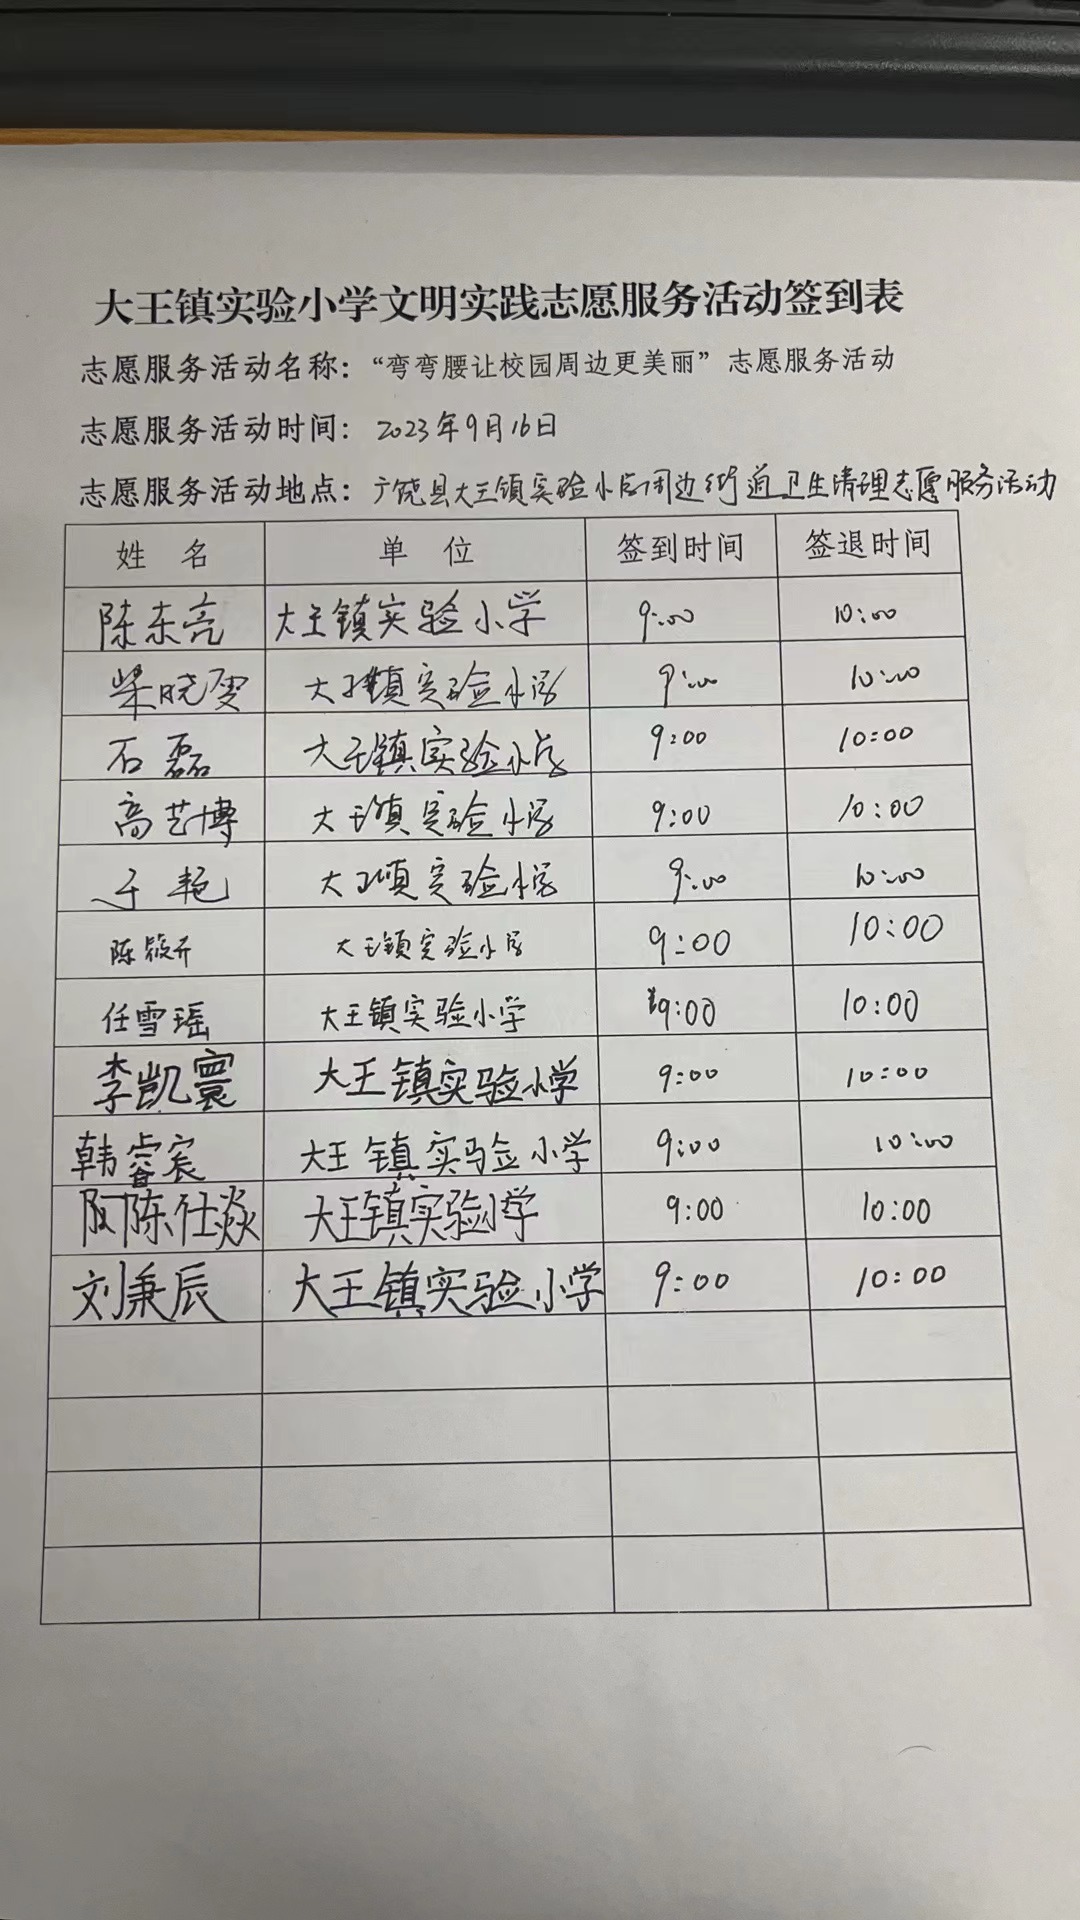 大王镇实验小学文明实践志愿服务活动签到表
志愿服务活动名称：“弯弯腰让校园周边更美丽”志愿服务活动
志愿服务活动时间：2023年9月16日
志愿服务活动地点：广饶县大王镇实验小学周边街道卫生清理志愿服务活动
姓 名 单 位 签到时间 签退时间
陈东亮 大王镇实验小学 9:00 10:00
柴晓雯 大王镇实验小学 9:00 10:00
石磊 大王镇实验小学 9:00 10:00
高艺博 大王镇实验小学 9:00 10:00
于艳 大王镇实验小学 9:00 10:00
陈筱卉 大王镇实验小学 9:00 10:00
任雪瑶 大王镇实验小学 9:00 10:00
李凯寰 大王镇实验小学 9:00 10:00
韩睿宸 大王镇实验小学 9:00 10:00
陈仕焱 大王镇实验小学 9:00 10:00
刘秉辰 大王镇实验小学 9:00 10:00